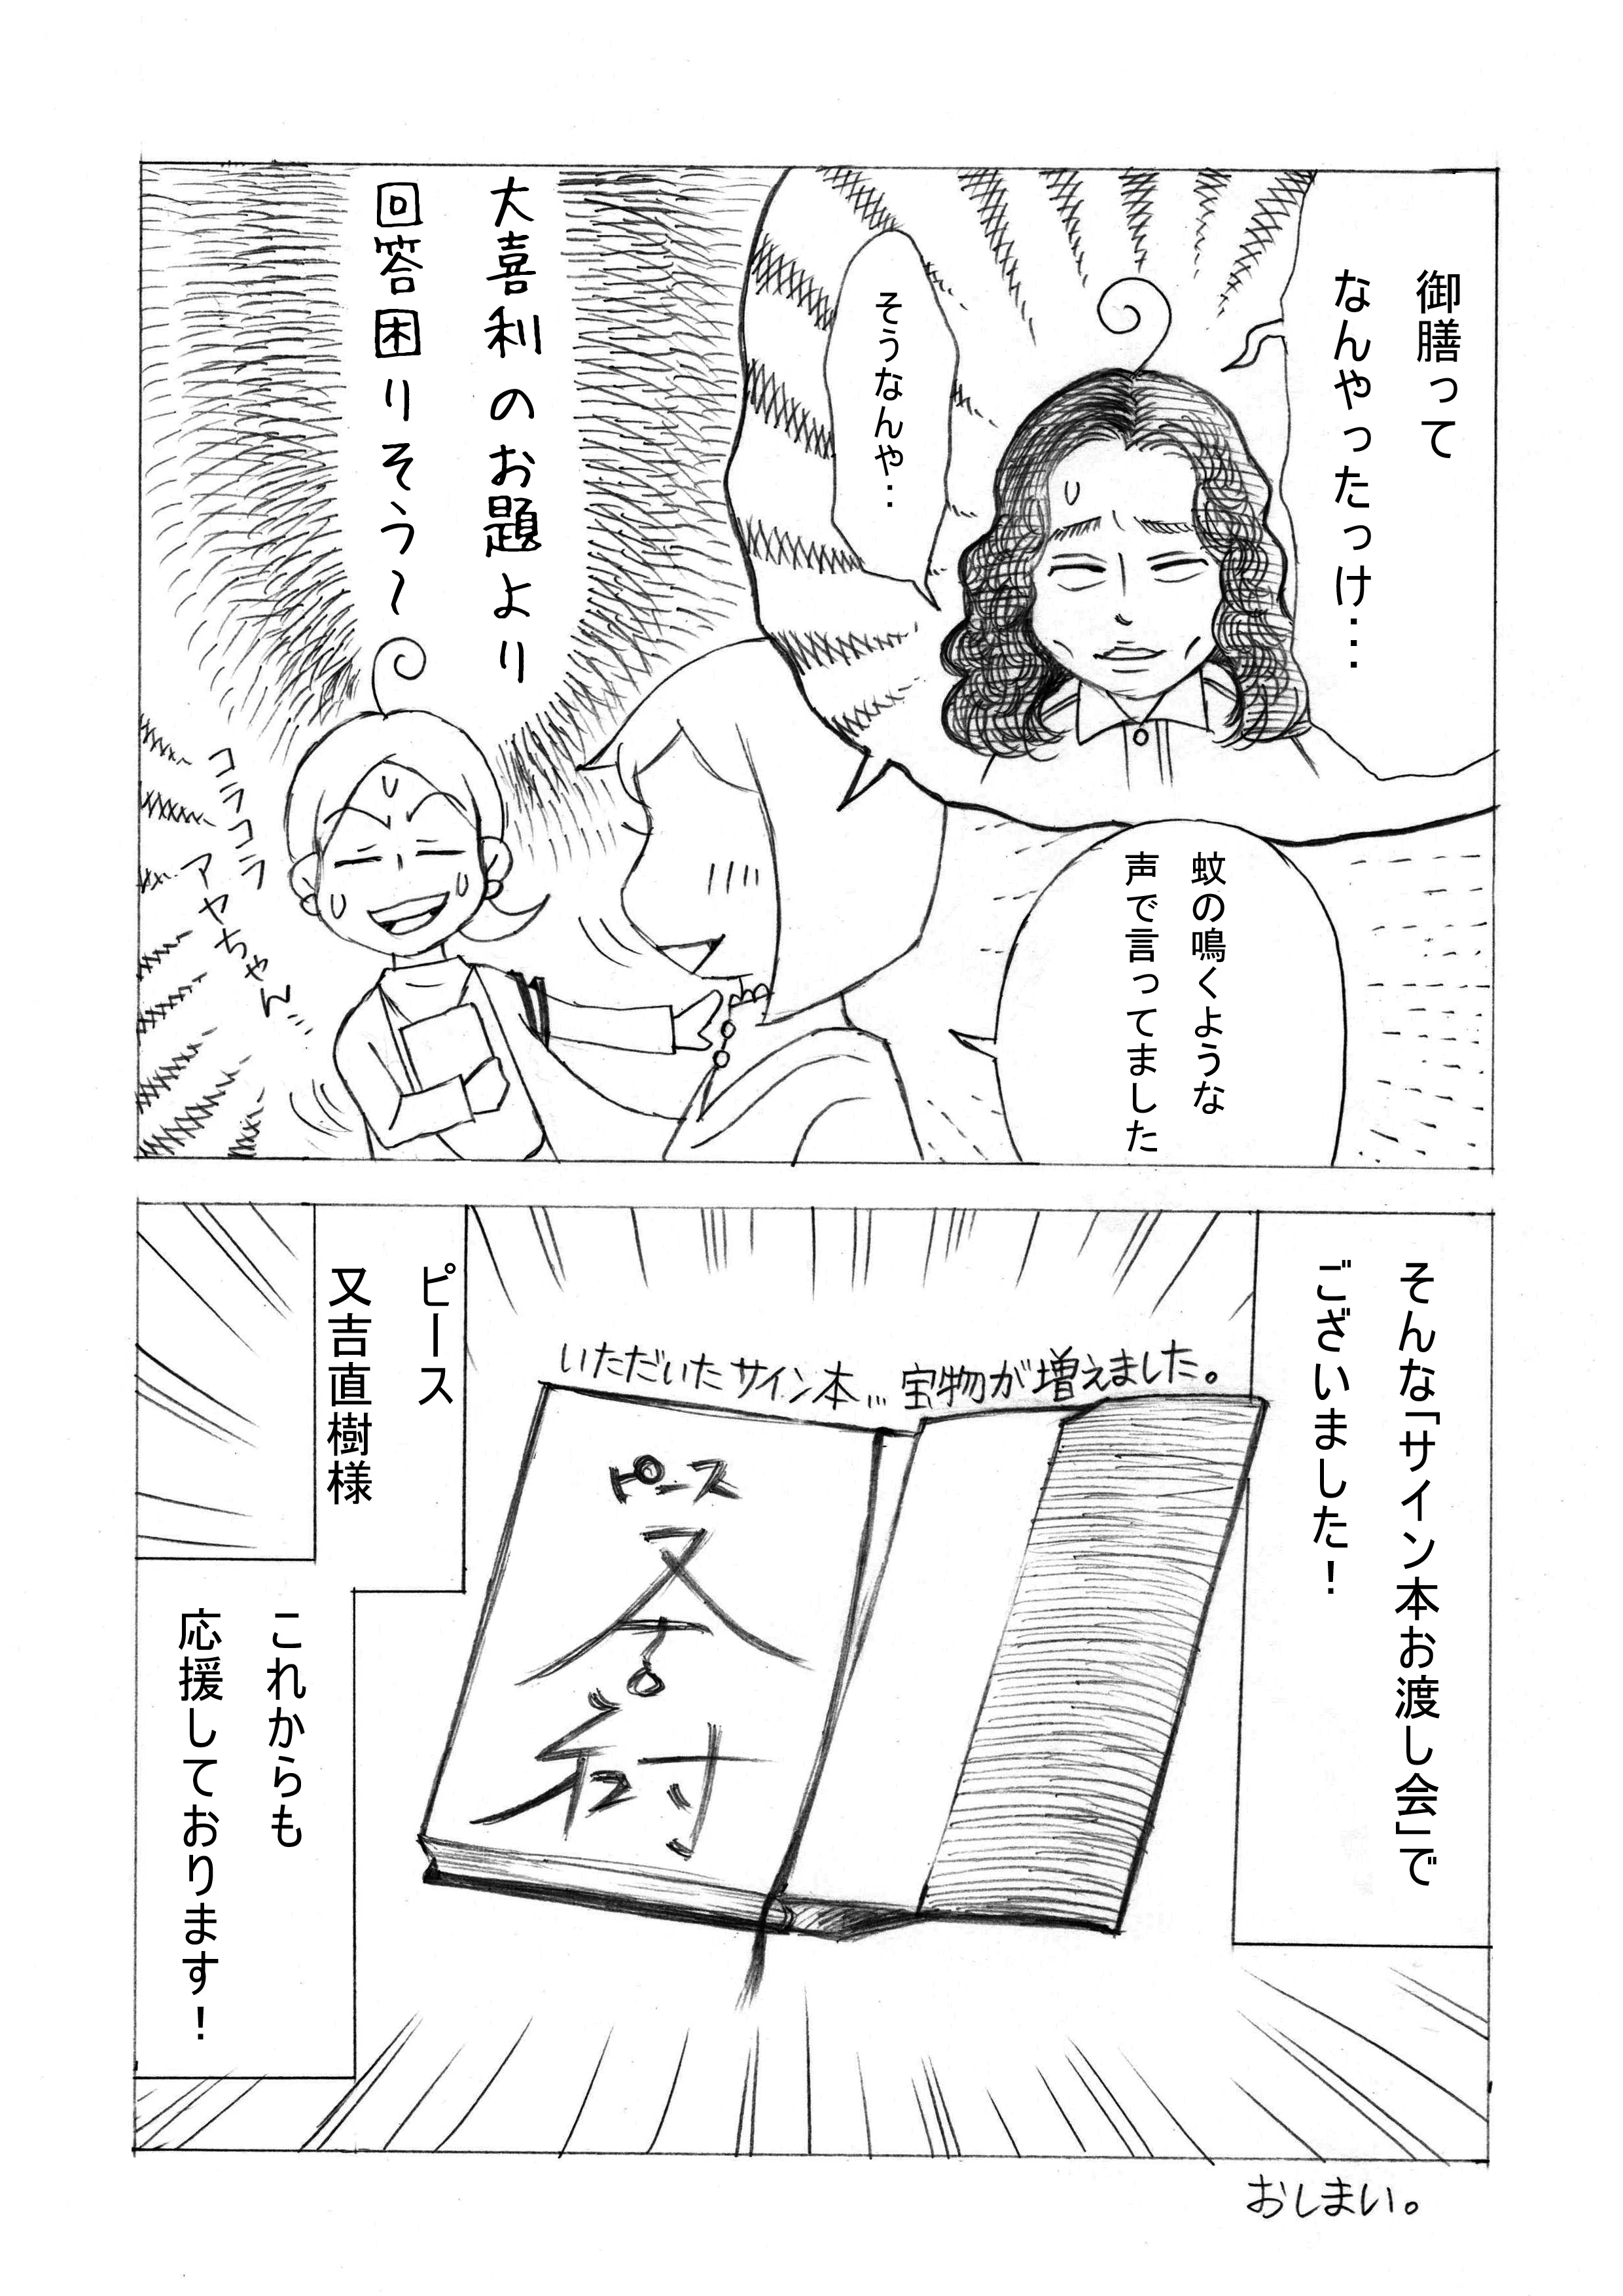 御膳って
なんやったっけ…
そうなんや…
蚊の鳴くような
声で言ってました
大喜利のお題より
回答困りそう～
コラコラ
アヤちゃん…
そんな「サイン本お渡し会」で
ございました！
いただいたサイン本…宝物が増えました。
ピース
又吉
ピース
又吉直樹様
これからも
応援しております！
おしまい。